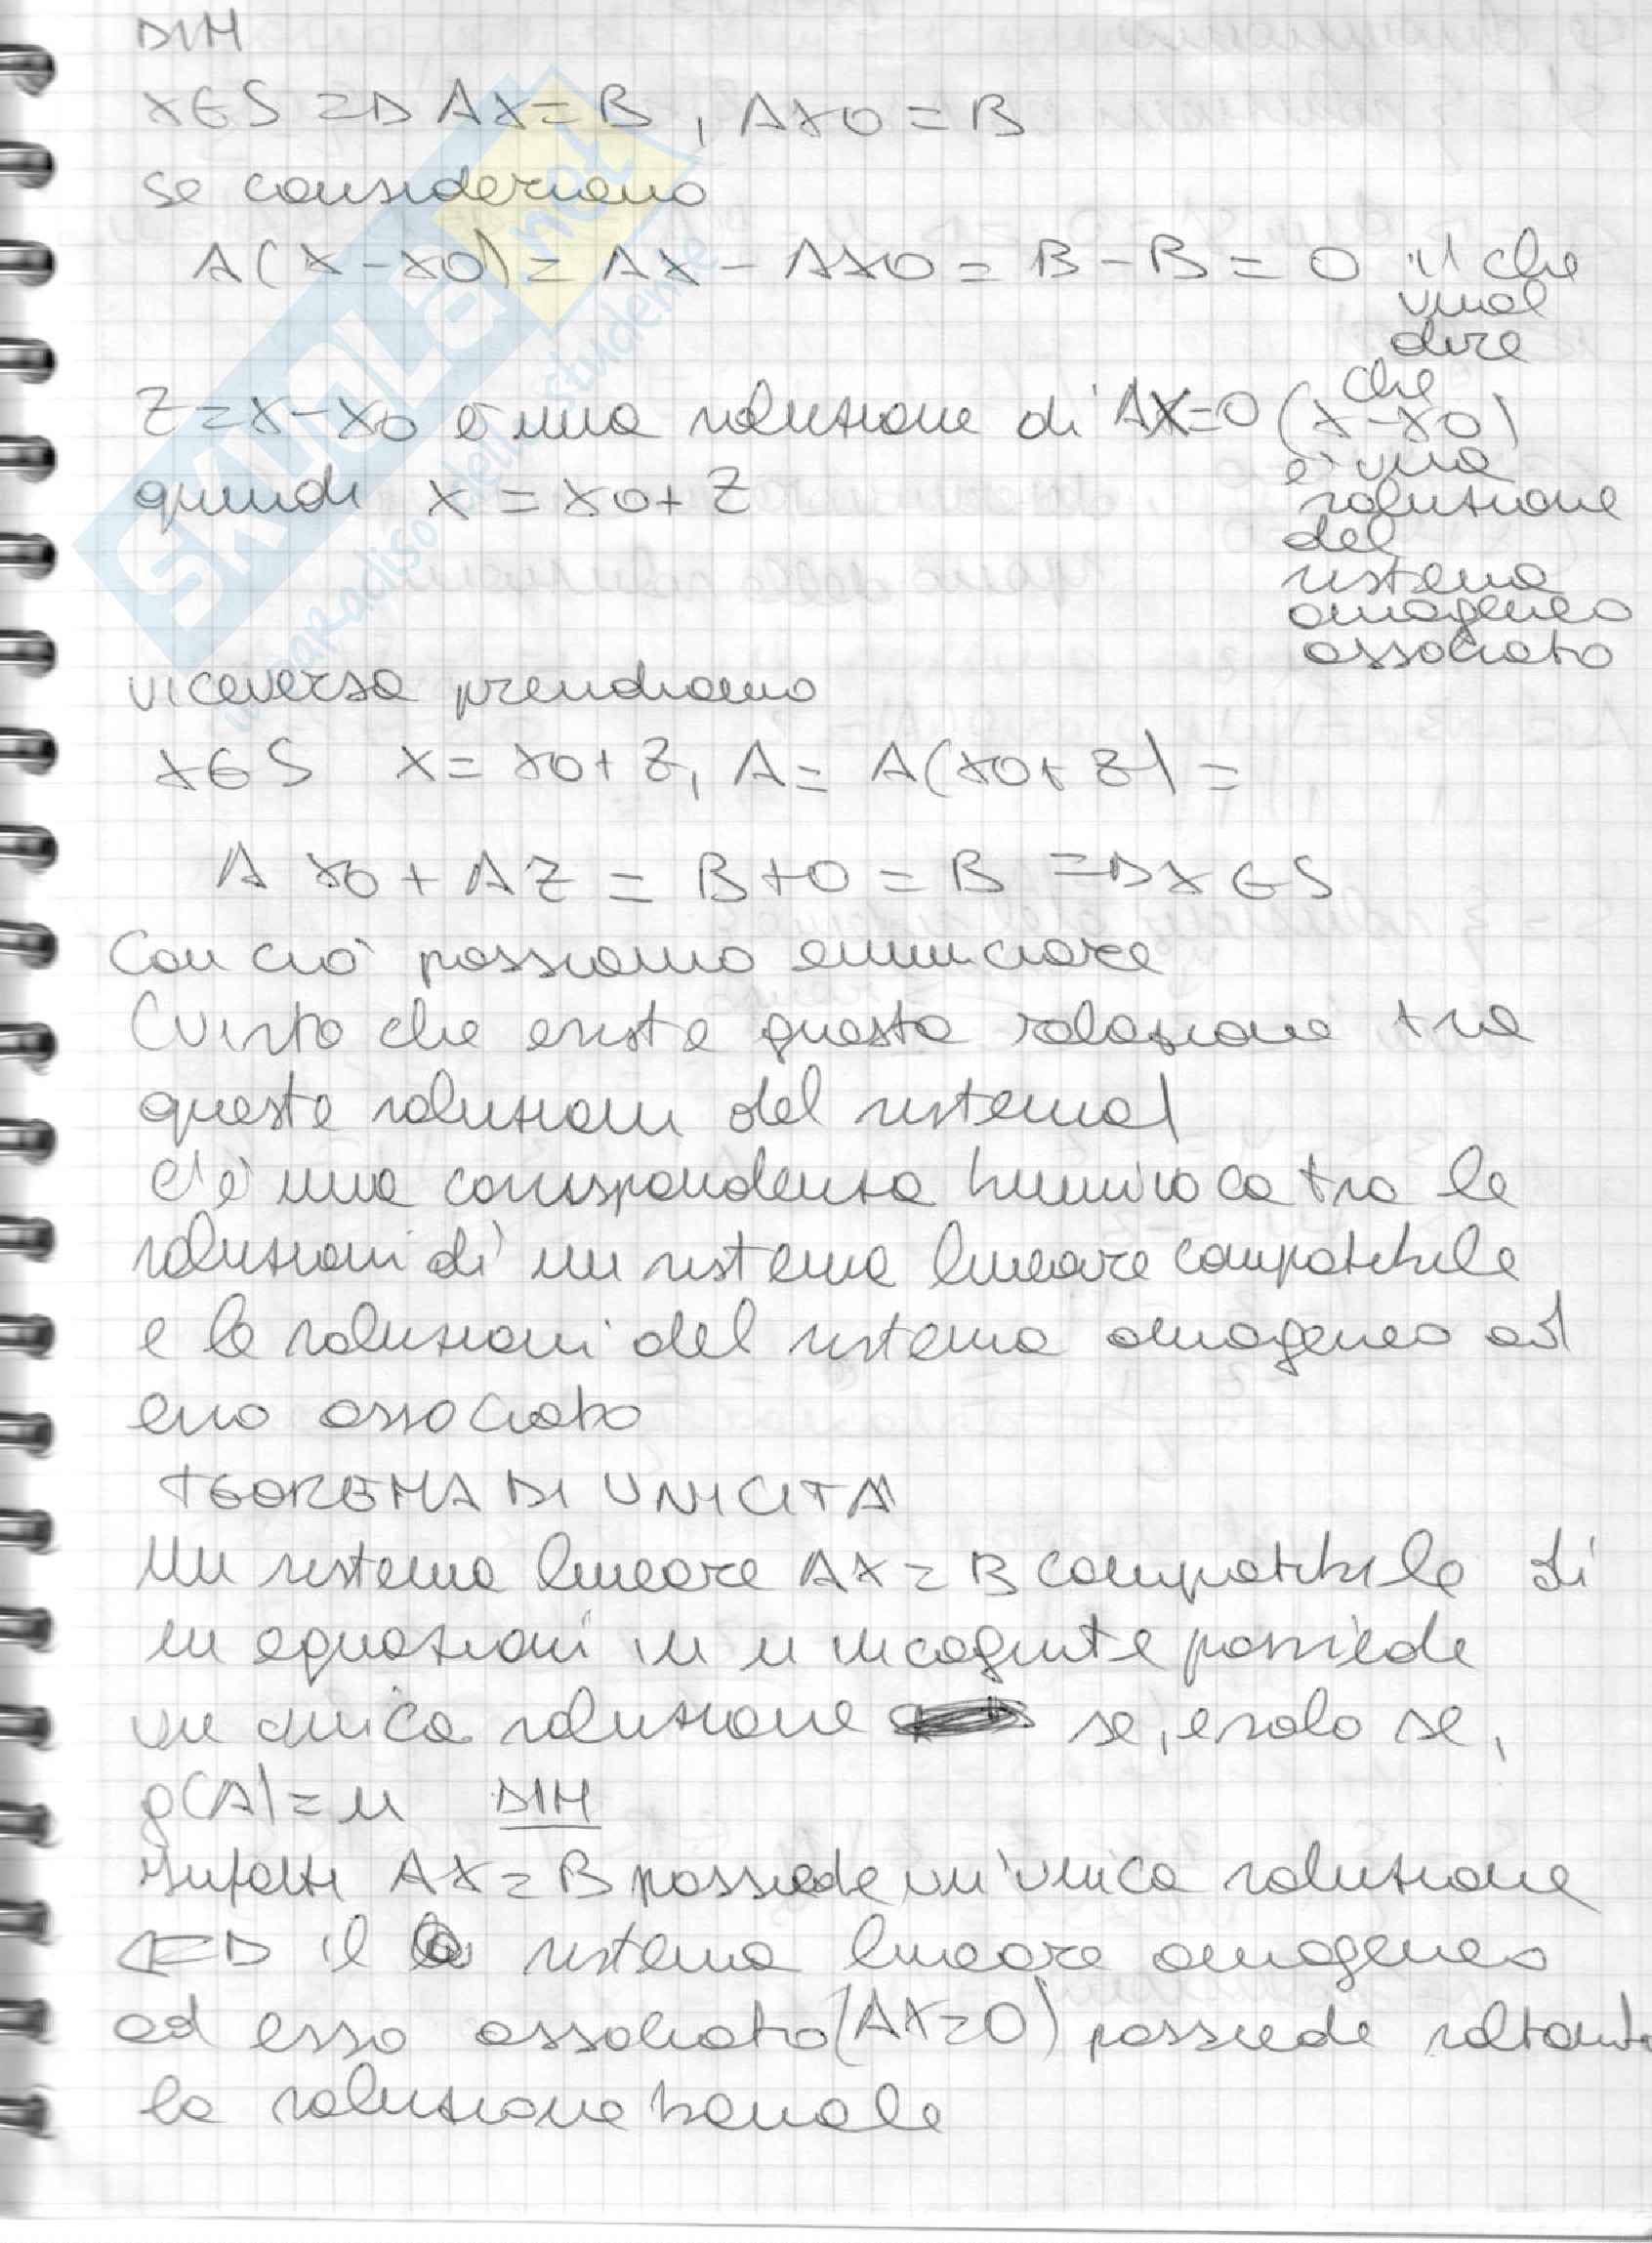 DIM
X∈S => AX=B, AX0=B
se consideriamo
A(X-X0)=AX-AX0=B-B=0 il che
vuol
dire
che
Z=X-X0 è una soluzione di AX=0 (X-X0)
è una
quindi X=X0+Z
soluzione
del
sistema
omogeneo
associato
viceversa prendiamo
X∈S X=X0+Z, A=A(X0+Z)=
AX0+AZ=B+0=B => X∈S
Con ciò possiamo enunciare
(visto che esiste questa relazione tra
queste soluzioni del sistema)
c'è una corrispondenza biunivoca tra le
soluzioni di un sistema lineare compatibile
e le soluzioni del sistema omogeneo ad
esso associato
TEOREMA DI UNICITÀ
Un sistema lineare AX=B compatibile di
m equazioni in n incognite possiede
un unica soluzione se, e solo se,
ρ(A)=n DIM
Infatti AX=B possiede un'unica soluzione
<=> il sistema lineare omogeneo
ad esso associato (AX=0) possiede soltanto
la soluzione banale
SKUOLA.net
il paradiso dello studente